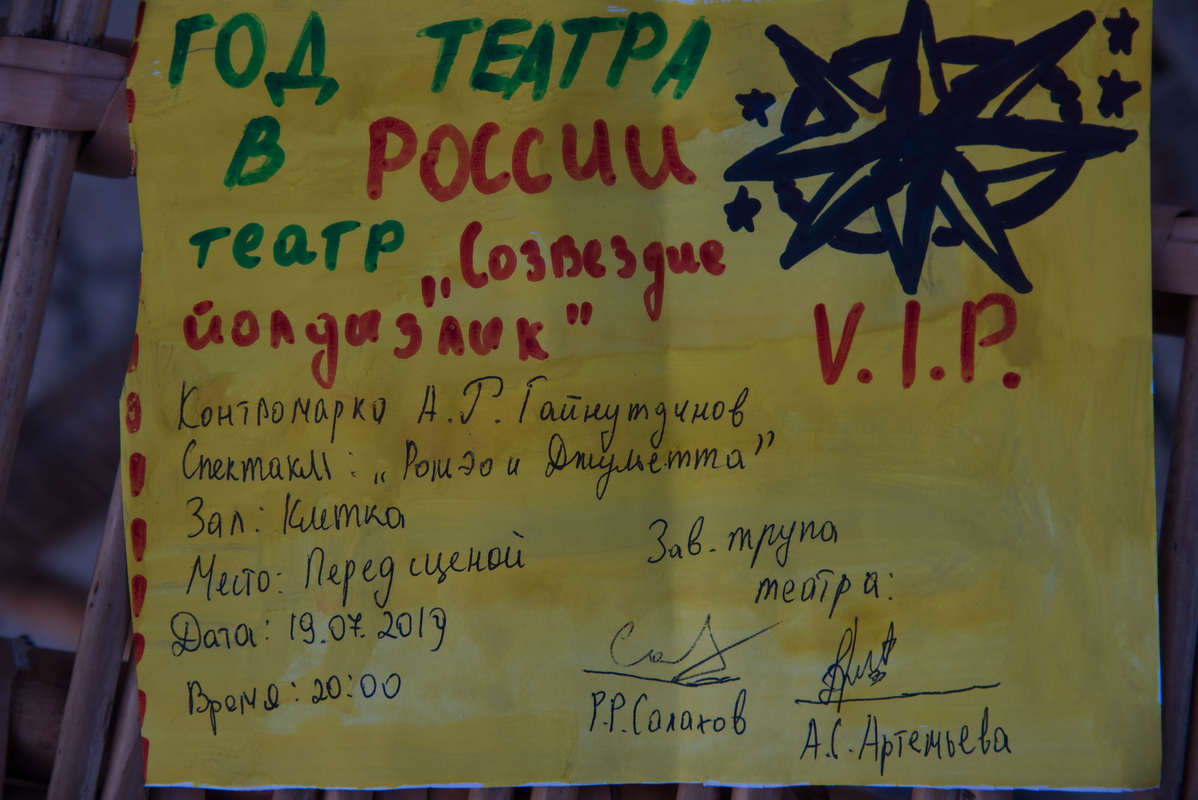 ГОД ТЕАТРА
В РОССИИ
театр „Созвездие
йолдызлык"
V.I.P.
Контромарка А.Р. Гайнутдинов
Спектакль: „Ромэо и Джульетта"
Зал: Клетка
Место: Перед сценой
Дата: 19.07.2019
Время: 20:00
Зав. трупа
театра:
Р.Р.Салахов
А.С.Артемьева